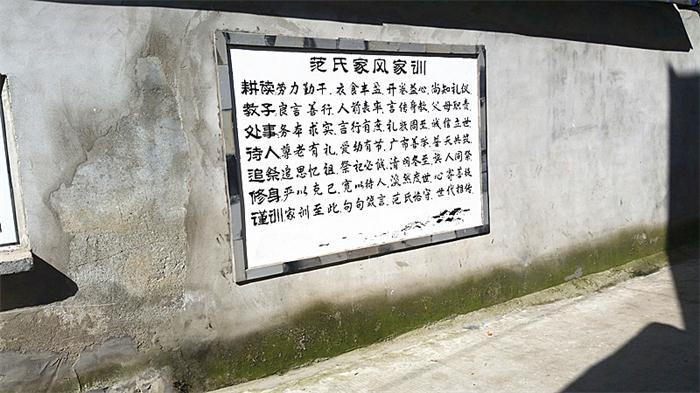 范氏家风家训
耕读劳力勤干、衣食丰盈、开卷益心、尚知礼仪
教子良言善行、人前表率、言传身教、父母职责
处事务本求实、言行有度、礼数周至、诚信立世
待人尊老有礼、爱幼有节、广市善举、普天共筑
追祭追思忆祖、祭祀必诚、清明冬至、人间祭
修身严以克己、宽以待人、淡然度世、心寄善
谨训家训至此、句句箴言、范氏恪守、世代相传